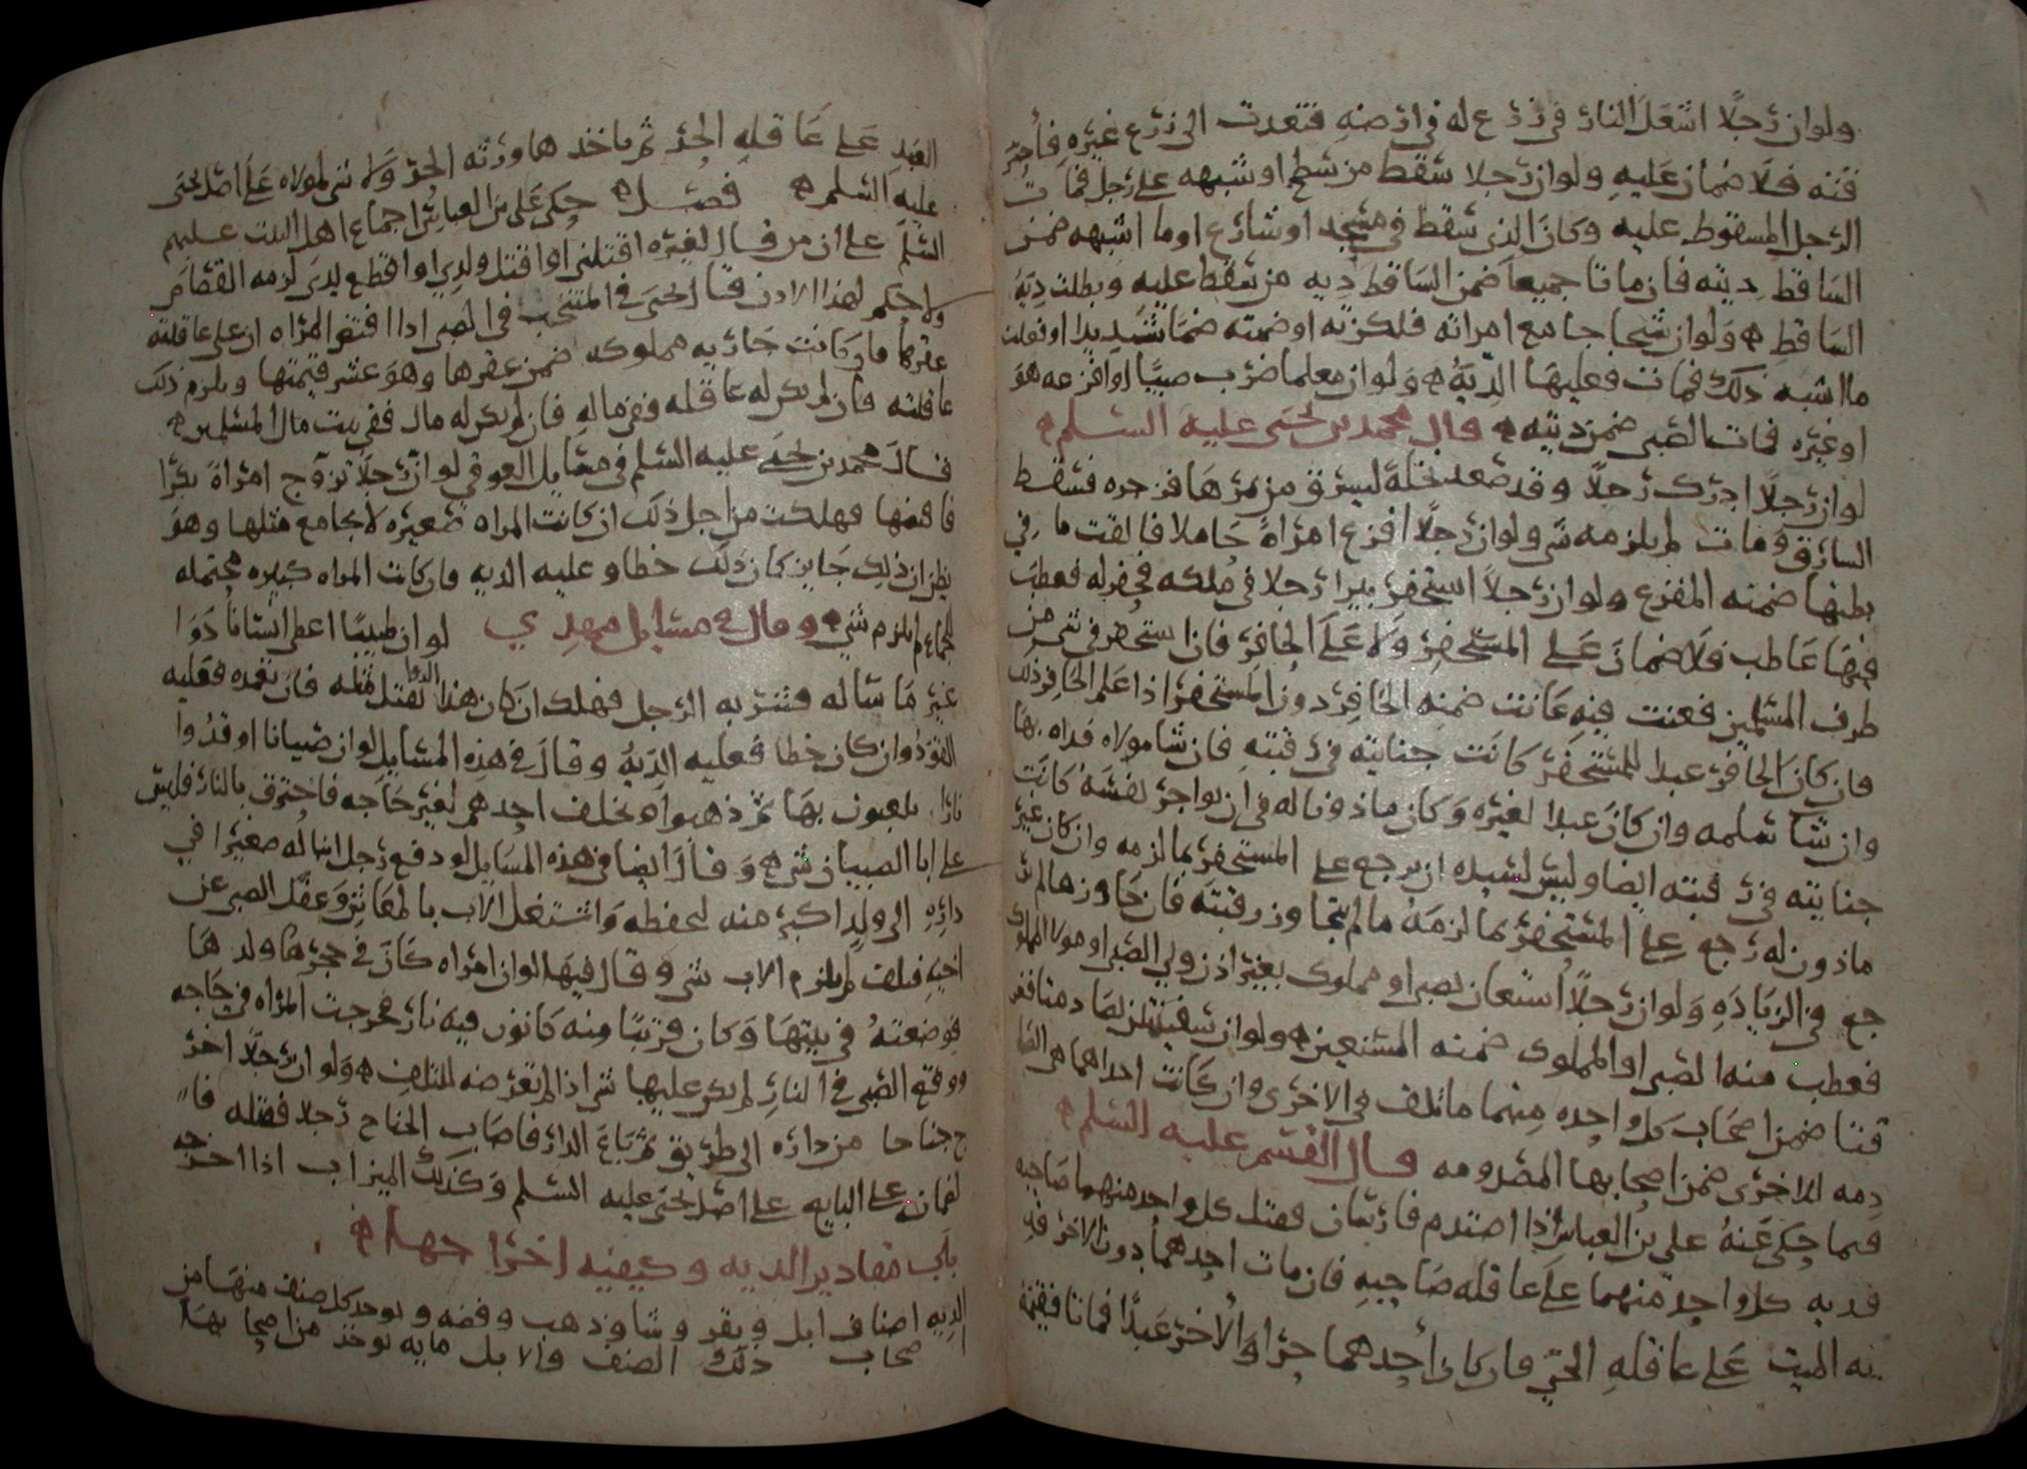 ولو ان رجلا اشعل النار في زرع له في ارضه فتعدت الى زرع غيره فاحر
قته فلا ضمان عليه ولو ان رجلا سقط من سطح او شبهه على رجل فمات
الرجل المسقوط عليه وكان الذي سقط في مسجد او شارع او ما اشبهه ضمن
الساقط ديته فان ماتا جميعا ضمن الساقط دية من سقط عليه وبطلت دية
الساقط ولو ان شيخا جامع امراته فلكزته او ضمته ضما شديدا او فعلت
ما اشبه ذلك فمات فعليها الدية ولو ان معلما ضرب صبيا او افزعه هو
او غيره فمات الصبي ضمن ديته قال محمد بن يحيى عليه السلم
لو ان رجلا ادرك رجلا وقد صعد نخلة ليسرق من ثمرها فزجره فسقط
السارق ومات لم يلزمه شي ولو ان رجلا افزع امراة حاملا فالقت ما في
بطنها ضمنه المفزع ولو ان رجلا استحفر بيرا رجلا في ملكه فحفر له فعطب
فيها عاطب فلا ضمان على المستحفر ولا على الحافر فان استحفر في شي من
طرف المسلمين فعنت فيه عانت ضمنه الحافر دون المستحفر اذا علم الحافر ذلك
فان كان الحافر عبدا للمستحفر كانت جنايته في رقبته فان شا مولاه فداه بها
وان شا سلمه وان كان عبدا لغيره وكان ماذونا له في ان يواجر نفسه كانت
جنايته في رقبته ايضا وليس لسيده ان يرجع على المستحفر بما لزمه وان كان غير
ماذون له رجع على المستحفر بما لزمه ما لم يتجاوز رقبته فان جاوزها لم ير
جع في الزيادة ولو ان رجلا استعان بصبي او مملوك بغير اذن ولي الصبي او مولا المملوك
فعطب منه الصبي او المملوك ضمنه المستعين ولو ان سفينتين تصادمتا فغر
قتا ضمن اصحاب كل واحده منهما ما تلف في الاخرى وان كانت احداهما هي الصا
دمه للاخرى ضمن اصحابها المصدومه قال القسم عليه السلم
فيما حكى عنه علي بن العباس اذا اصتدم فارسان فقتل كل واحد منهما صاحبه
فديه كل واحد منهما على عاقله صاحبه فان مات احدهما دون الاخر فد
يه الميت على عاقله الحي فان كان احدهما حرا والاخر عبدا فماتا فقيمة
العبد على عاقله الحر ثم ياخذها ورثه الحر ولا شي لمولاه على اصل يحيى
عليه السلم فصل حكى علي بن العباس اجماع اهل البيت عليهم
السلم على ان من قال لغيره اقتلني او اقتل ولدي او اقطع يدي لزمه القصاص
ولا حكم لهذا الاذن قال يحيى في المنتخب في الصبي اذا افتض المراه ان على عاقلته
عقرها فان كانت جاريه مملوكه ضمن عقرها وهو عشر قيمتها ويلزم ذلك
عاقلته فان لم يكن له عاقله ففي ماله فان لم يكن له مال ففي بيت مال المسلمين
قال محمد بن يحيى عليه السلم في مسايل العوفي لو ان رجلا تزوج امراة بكرا
فافضها فهلكت من اجل ذلك ان كانت المراه صغيره لا يجامع مثلها وهو
يظن ان ذلك جايز كان ذلك خطا وعليه الديه فان كانت المراه كبيره محتمله
للجماع لم يلزم شي وقال في مسايل مهدي لو ان طبيبا اعطى انسانا دوا
غير ما ساله فشربه الرجل فهلك ان كان هذا الدوا يقتل مثله فان تعمده فعليه
القود وان كان خطا فعليه الدية وقال في هذه المسايل لو ان صبيانا اوقدوا
نارا يلعبون بها ثم ذهبوا وتخلف احدهم لغير حاجه فاحترق بالنار فليس
على ابا الصبيان شي وقال ايضا في هذه المسايل لو دفع رجل ابنا له صغيرا في
داره الى ولد اكبر منه ليحفظه واشتغل الاب بالمعاش وغفل الصبي عن
اخيه فتلف لم يلزم الاب شي وقال فيها لو ان امراه كان في حجرها ولد لها
فوضعته في بيتها وكان قريبا منه كانون فيه نار فخرجت المراه في حاجه
ووقع الصبي في النار لم يكن عليها شي اذا لم تعرضه للتلف ولو ان رجلا اخر
ج جناحا من داره الى طريق ثم باع الدار فاصاب الجناح رجلا فقتله فا
لضمان على البايع على اصل يحيى عليه السلم وكذلك الميزاب اذا اخرجه
باب مقادير الديه وكيفيه اخراجها
الديه اصناف ابل وبقر وشا وذهب وفضه ويوخذ كل صنف منها من
اصحاب ذلك الصنف والابل مايه يوخذ من اصحابها